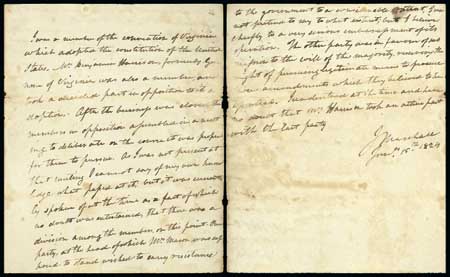 I was a member of the convention of Virginia
which adopted the constitution of the United
States. Mr. Benjamin Harrison formerly Gover-
nor of Virginia was also a member, and
took a decided part in opposition to its a-
doption. After the business was closed the
members in opposition assembled in a meet
ing to deliberate on the course it was proper
for them to pursue. As I was not present at
that meeting I cannot say of my own know
ledge what passed at it, but it was current
ly spoken of at the time as a fact of which
no doubt was entertained, that there was a
division among the members on the point. One
party, at the head of which Mr. Mason was sup
posed to stand wished to carry resistance
to the government to a extent, I can
not pretend to say to what extent, but I believe
chiefly to a very serious embarrassment of its
operation. The other party was in favor of sub
mission to the will of the majority reserving the
right of pursuing legitimate means to procure
amendments which they believed to be
required. I understood at the time and have
no doubt that Mr. Harrison took an active part
with the last party
J Marshall
15th 1824